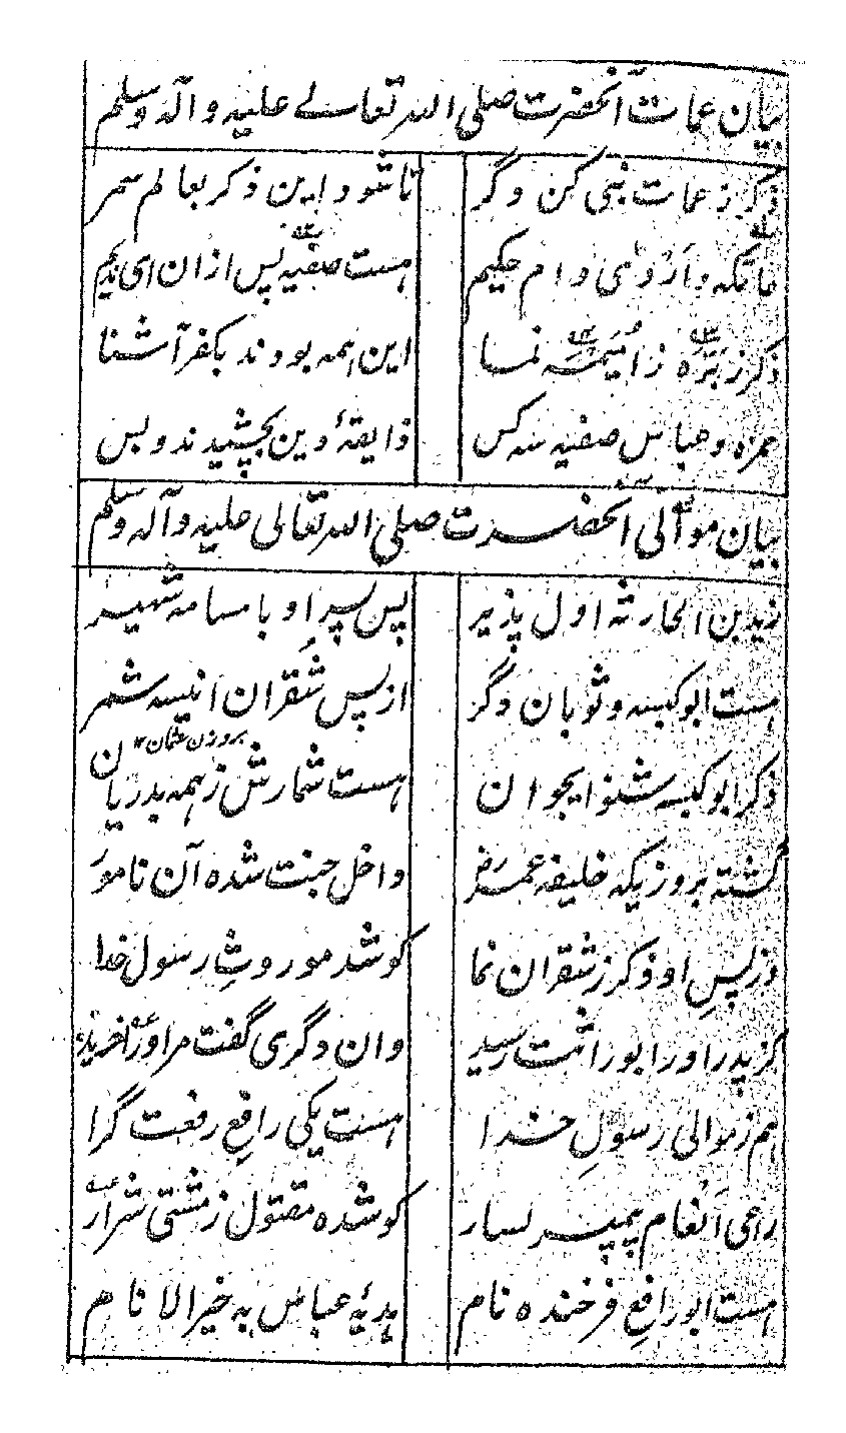 بیان عمات آنحضرت صلی الله تعالے علیه و آله وسلم
ذکر ز عمات نبی کن و گر تا شود این ذکر بعالم سمر
عاتکه و اروی و ام حکیم هست صفیه پس ازان ای ندیم
ذکر ز بره ز امیمه نسا این همه بودند بکفر آشنا
حمزه و عباس صفیه سه کس ذایقهٔ دین بچشیدند و بس
بیان موالی آنحضرت صلی الله تعالی علیه وآله وسلم
زید بن الحارثه اول پذیر پس پسر او با سامه شهیر
هست ابو کبسه و ثوبان دگر از پس شقران انیسه شمر
بروزن عثمان
ذکر ابو کبسه شنو ایجوان هست شمارش ز همه بدریان
گشته بروزیکه خلیفه عمر داخل جنت شده آن نامور
وز پس او ذکر ز شقران نما کو شد موروث رسول خدا
کز پدر او را بوراثت رسید وان دگری گفت مر اورا خرید
هم ز موالی رسول خدا هست یکی رافع رفعت گرا
راعی انعام پیمبر یسار کو شده مقتول ز مشتی شرار
هست ابو رافع فرخنده نام هدیهٔ عباس به خیر الانام